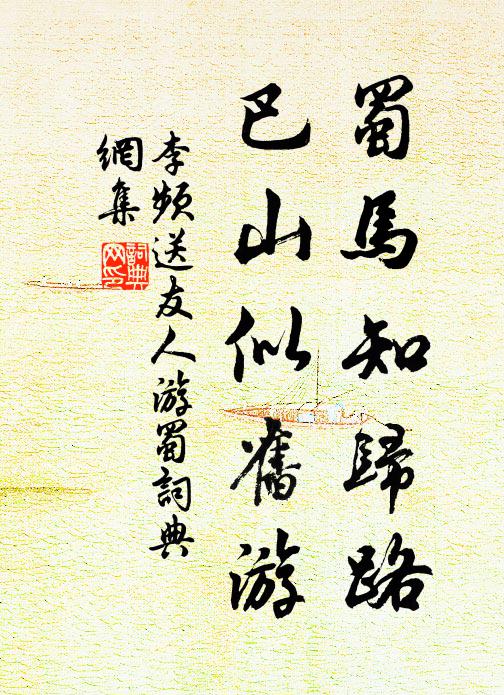 蜀馬知歸路
巴山似舊游
李頻送友人游蜀詞典
網集
詞典
网印